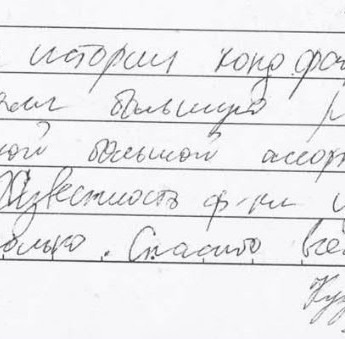 истории конд фа
большую р
кой большой ассор
Известность ф-ки и
олько. Спасибо все
Куз